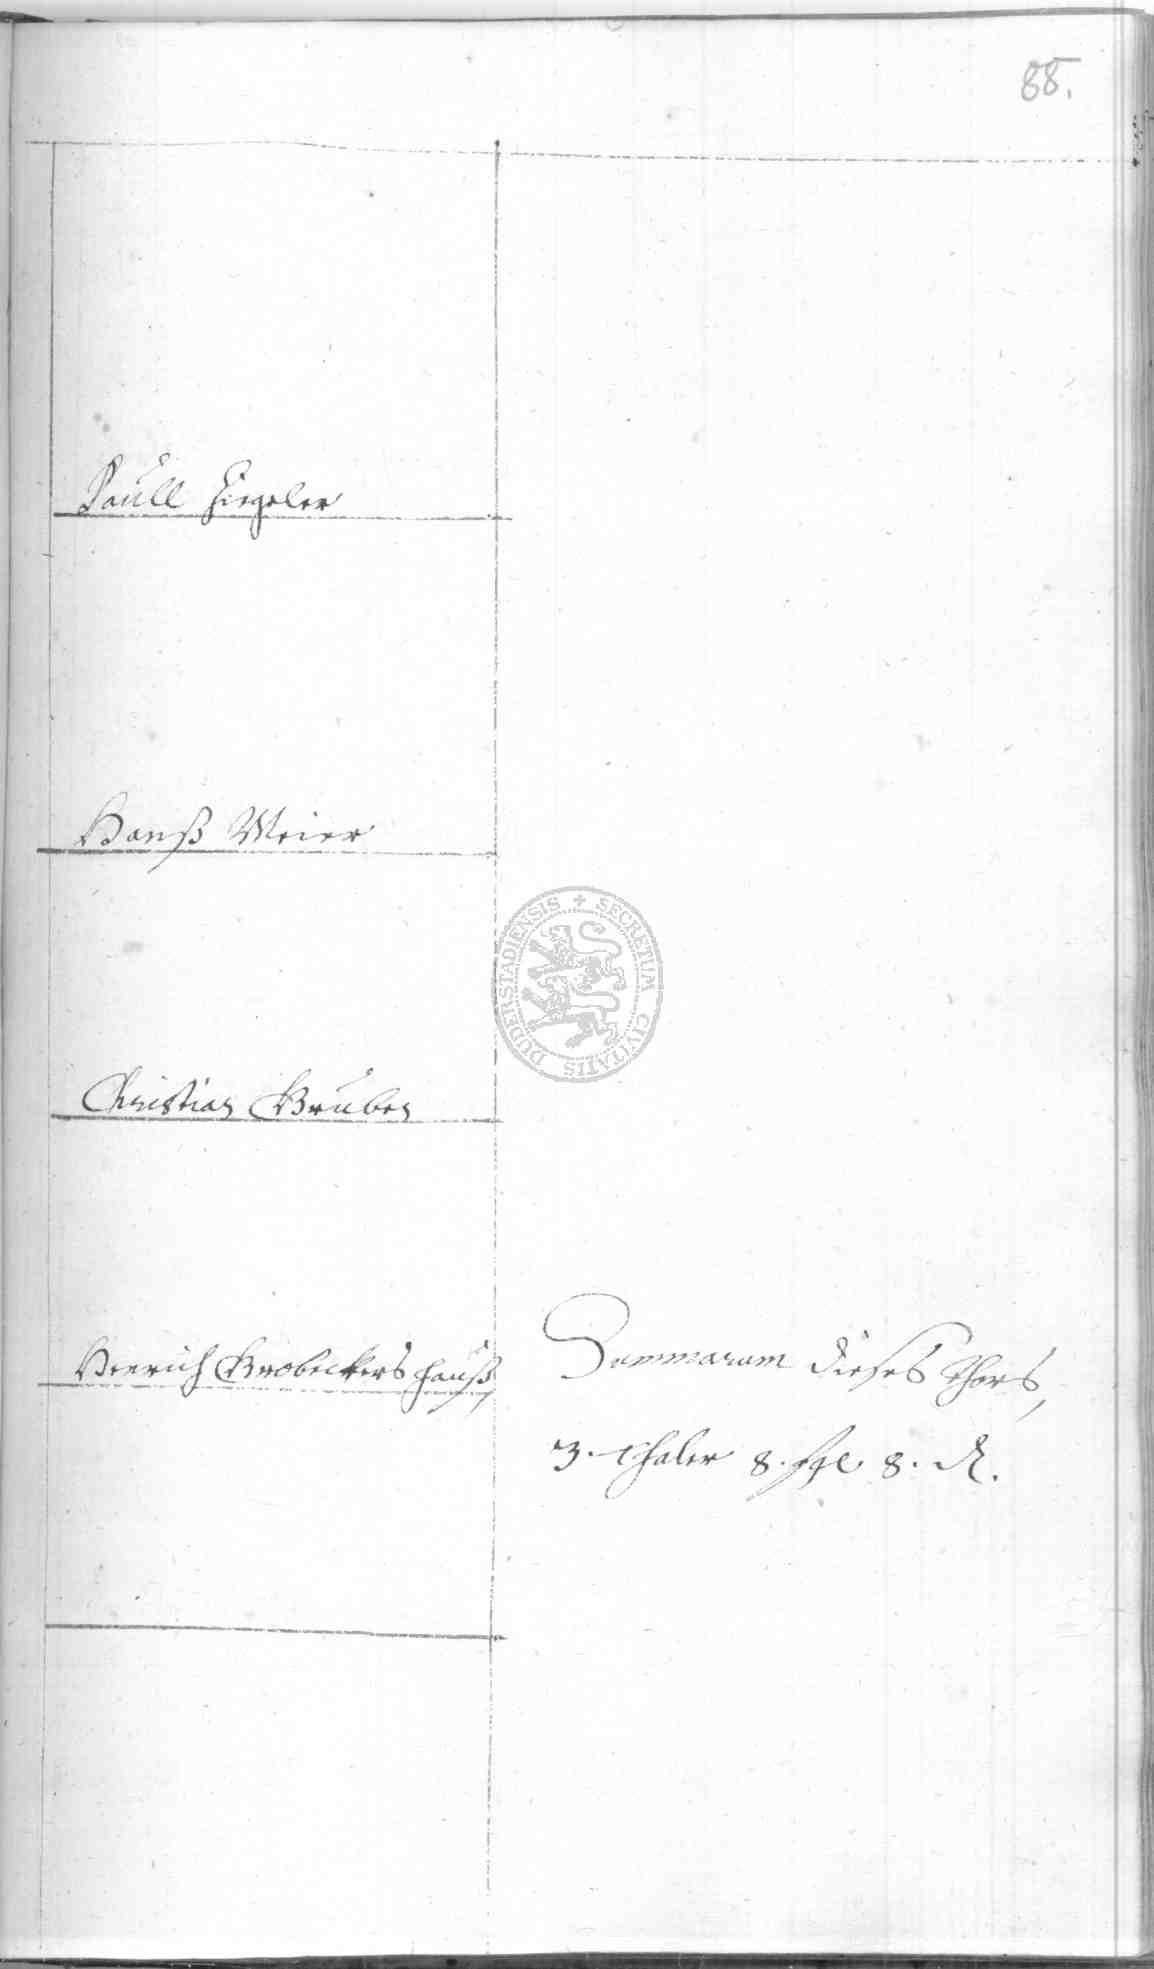 88.
Paull Ziegeler
Hanß Meier
SECRETUM CIVITATIS DUDERSTADIENSIS
Christian Gruber
Henrich Brobeckers hauß
Summarum dieses Thors,
3. thaler 8. ßgl 8. ₰.